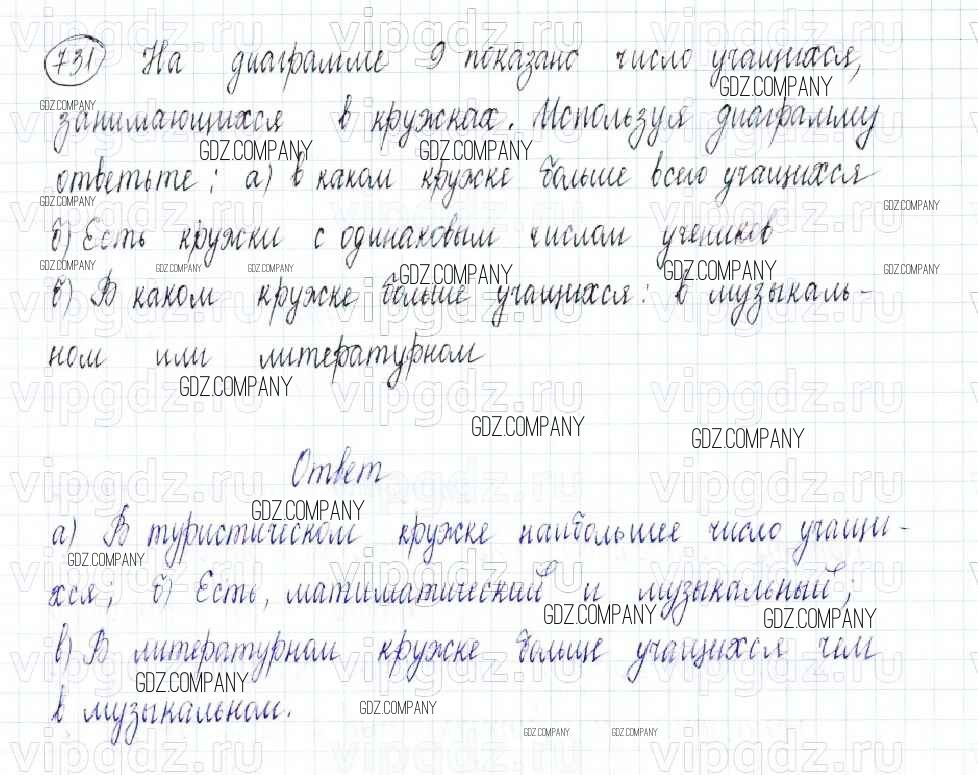 731 На диаграмме 9 показано число учащихся,
занимающихся в кружках. Используя диаграмму
ответьте: а) в каком кружке больше всего учащихся
б) Есть кружки с одинаковым числом учеников
в) В каком кружке больше учащихся: в музыкаль-
ном или литературном
Ответ
а) В туристическом кружке наибольшее число учащи-
хся; б) Есть, матиматический и музыкальный;
в) В литературном кружке больше учащихся чем
в музыкальном.